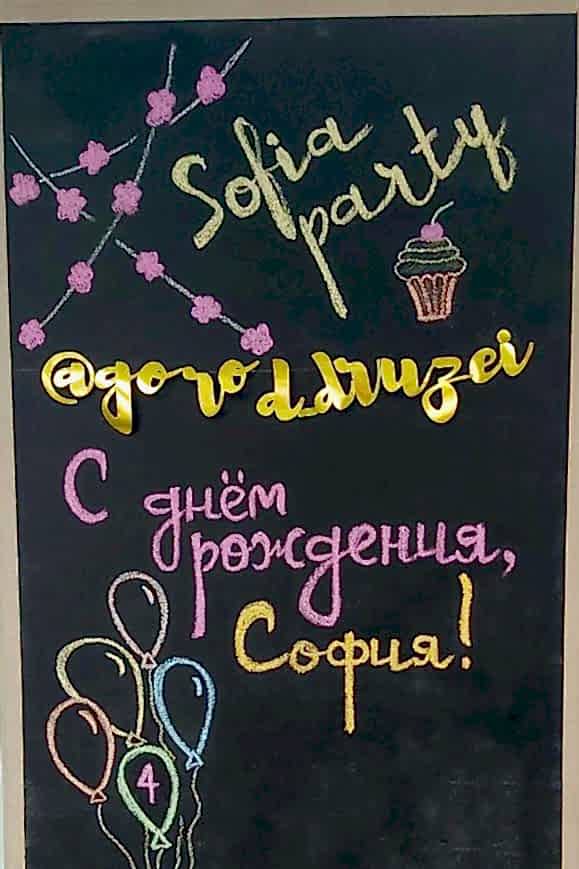 Sofia
party
@gorod_druzei
С днём
рождения,
София!
4